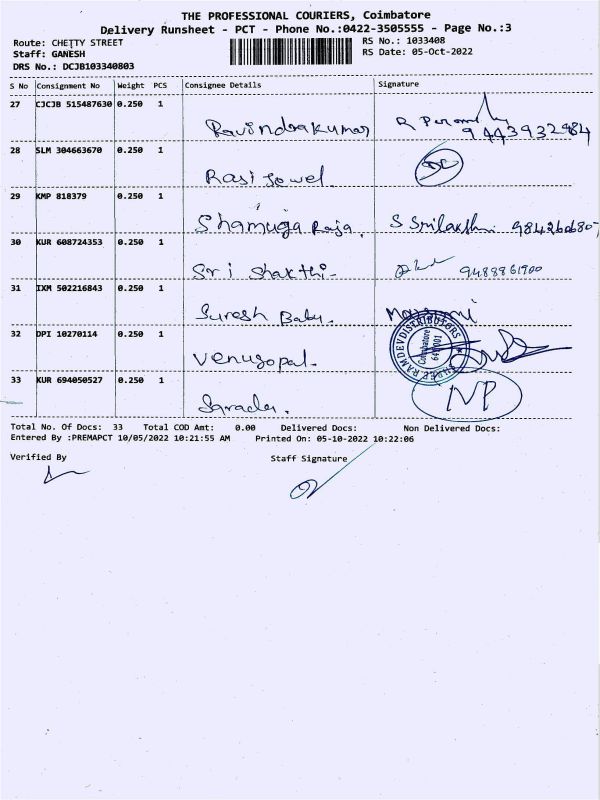 THE PROFESSIONAL COURIERS, Coimbatore
Delivery Runsheet - PCT - Phone No.:0422-3505555 - Page No.:3
Route: CHETTY STREET
RS No.: 1033408
Staff: GANESH
RS Date: 05-Oct-2022
DRS No.: DCJB103340803
S No Consignment No Weight PCS Consignee Details Signature
27 CJCJB 515487630 0.250 1 Ravindrakumar R 9443932984
28 SLM 304663670 0.250 1 Rasi Jewel
29 KMP 818379 0.250 1 Shamuga Raja. S
30 KUR 608724353 0.250 1 Sri Shakthi- 9488861900
31 IXM 502216843 0.250 1 Suresh Babu.
32 DPI 10270114 0.250 1 Venugopal. RAMDEV DISTRIBUTORS Coimbatore
33 KUR 694050527 0.250 1 NP
Total No. Of Docs: 33 Total COD Amt: 0.00 Delivered Docs: Non Delivered Docs:
Entered By :PREMAPCT 10/05/2022 10:21:55 AM Printed On: 05-10-2022 10:22:06
Verified By Staff Signature